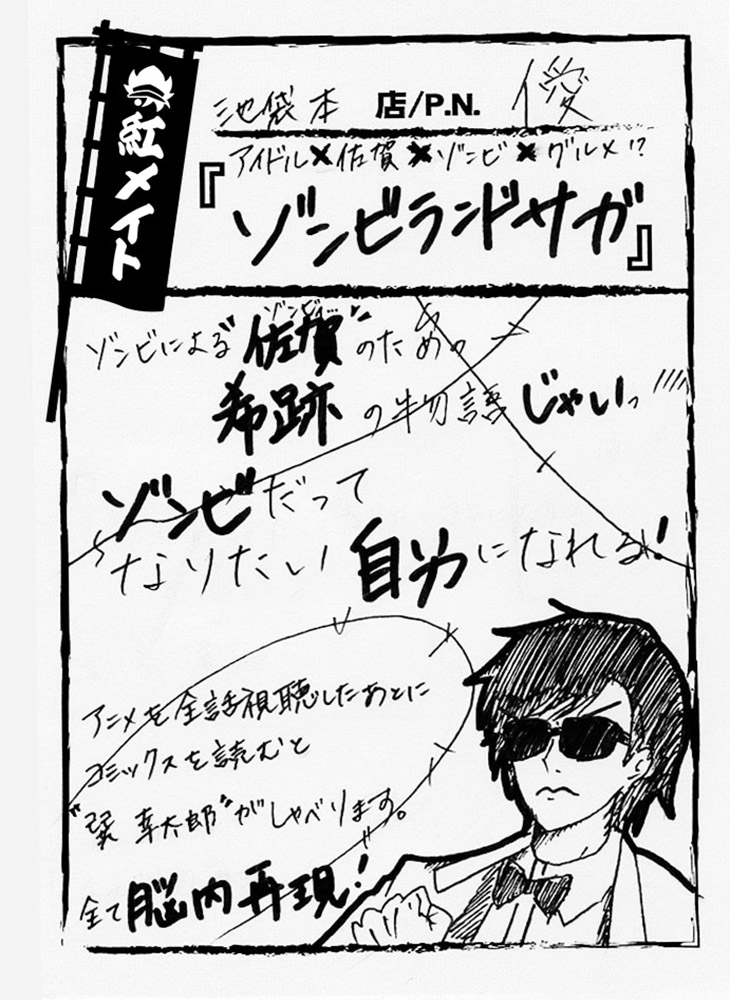 紅メイト
池袋本 店/P.N. 優
アイドル×佐賀×ゾンビ×グルメ!?
『ゾンビランドサガ』
ゾンビによる"佐賀"のための
ゾンビィ…
希跡の物語じゃいっ
ゾンビだって
なりたい自分になれる!
アニメを全話視聴したあとに
コミックスを読むと
"巽 幸太郎"がしゃべります。
全て脳内再現!